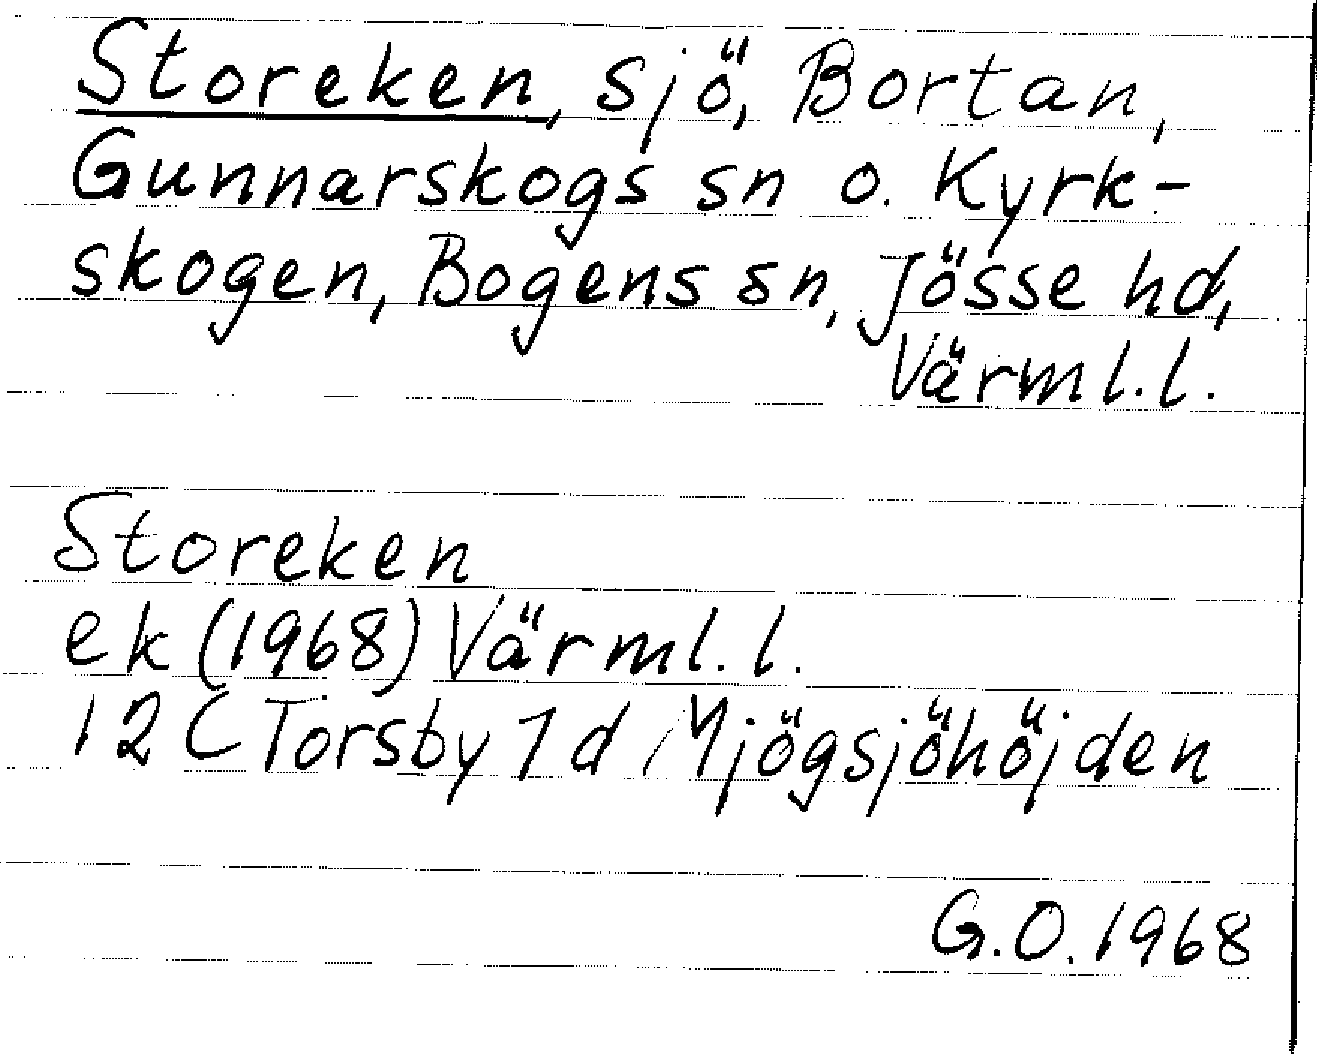 Storeken, sjö, Bortan,
Gunnarskogs sn o. Kyrk-
skogen, Bogens sn, Jösse hd,
Värml.l.
Storeken
ek (1968) Värml.l.
12 C Torsby 1 d Mjögsjöhöjden
G.O. 1968